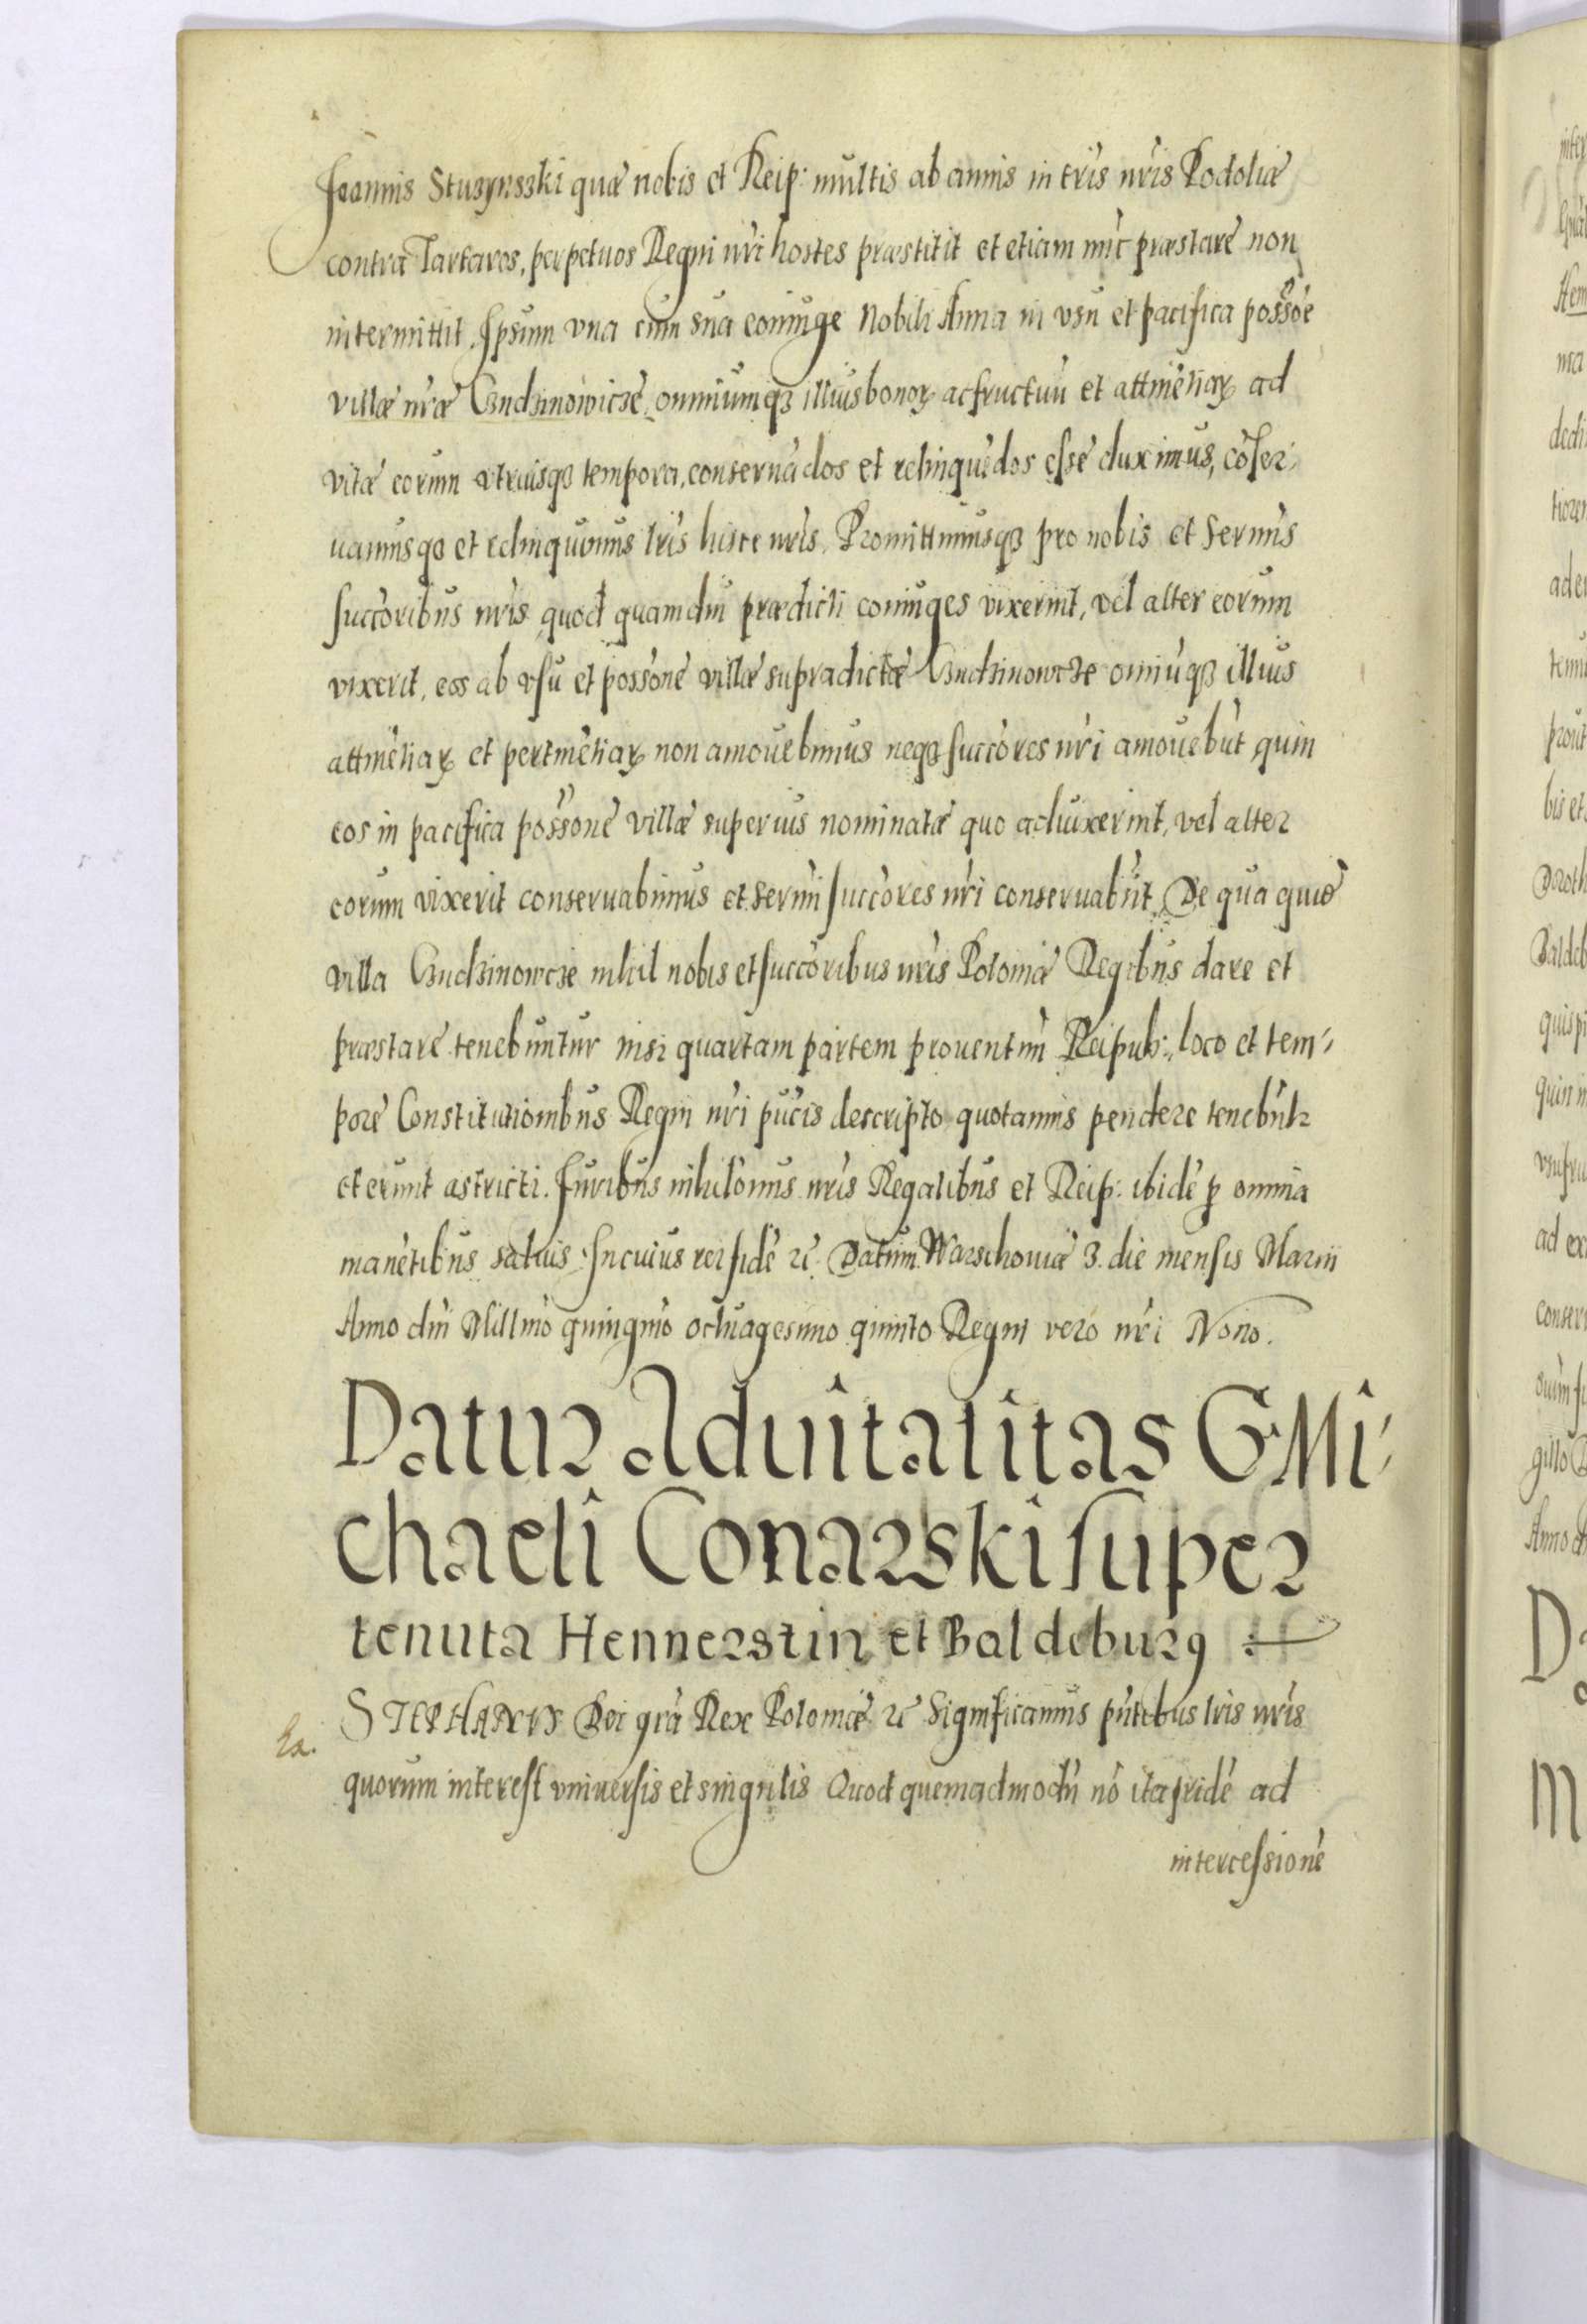 Joannis Stuzynszki quæ nobis et Reip: multis ab annis in tr̃is nr̃is Podoliæ
contra Tartaros, perpetuos Regni nr̃i hostes præstitit et etiam nũc præstare non
intermittit. Ipsum vna cum sua coniuge Nobili Anna in vsu et pacifica possõe
villæ nr̃æ omniumqȝ illius bonoꝝ ac fructuũ et attinẽtiaꝝ ad
vitæ eorum vtriusqȝ tempora, conseruãdos et relinquẽdos esse duximus, cõser,
uamusqȝ et relinquimus lr̃is hisce nr̃is. Promittimusqȝ pro nobis et Sermis
succõribus nr̃is, quod quamdiu prædicti coniuges vixerint, vel alter eorum
vixerit, eos ab vsu et possõne villæ supradictæ omniũqȝ illius
attinẽtiaꝝ et pertinẽtiaꝝ non amouebimus neqȝ succõres nr̃i amouebũt, quin
eos in pacifica possõne villæ superius nominatæ quo aduixerint, vel alter
eorum vixerit conseruabimus et sermi succõres nr̃i conseruabũt, De qua quidẽ
villa nihil nobis et succõribus nr̃is Poloniæ Regibus dare et
præstare tenebuntur nisi quartam partem prouentuũ Reipub: loco et tem,
pore Constitutionibus Regni nr̃i pũcis descripto quotannis pendere tenebũtr
et erunt astricti. Juribus nihilominus nr̃is Regalibus et Reip: ibidẽ ꝑ omnia
manẽtibus saluis. In cuius rei fidẽ ꝛc̃ Datum Warschouiæ 3. die mensis Marcii
Anno dñi Millmo quingmo octuagesimo quinto Regni vero nr̃i Nono.
Datur Aduitalitas G. Mi,
chaeli Conarski super
tenuta Hennerstin et Baldeburg
Ex.
STEPHANVS Dei grã Rex Poloniæ ꝛc̃ Significamus pñtibus lr̃is nr̃is
quorum interest vniuersis et singulis Quod quemadmodũ nõ ita pridẽ ad
intercessionẽ